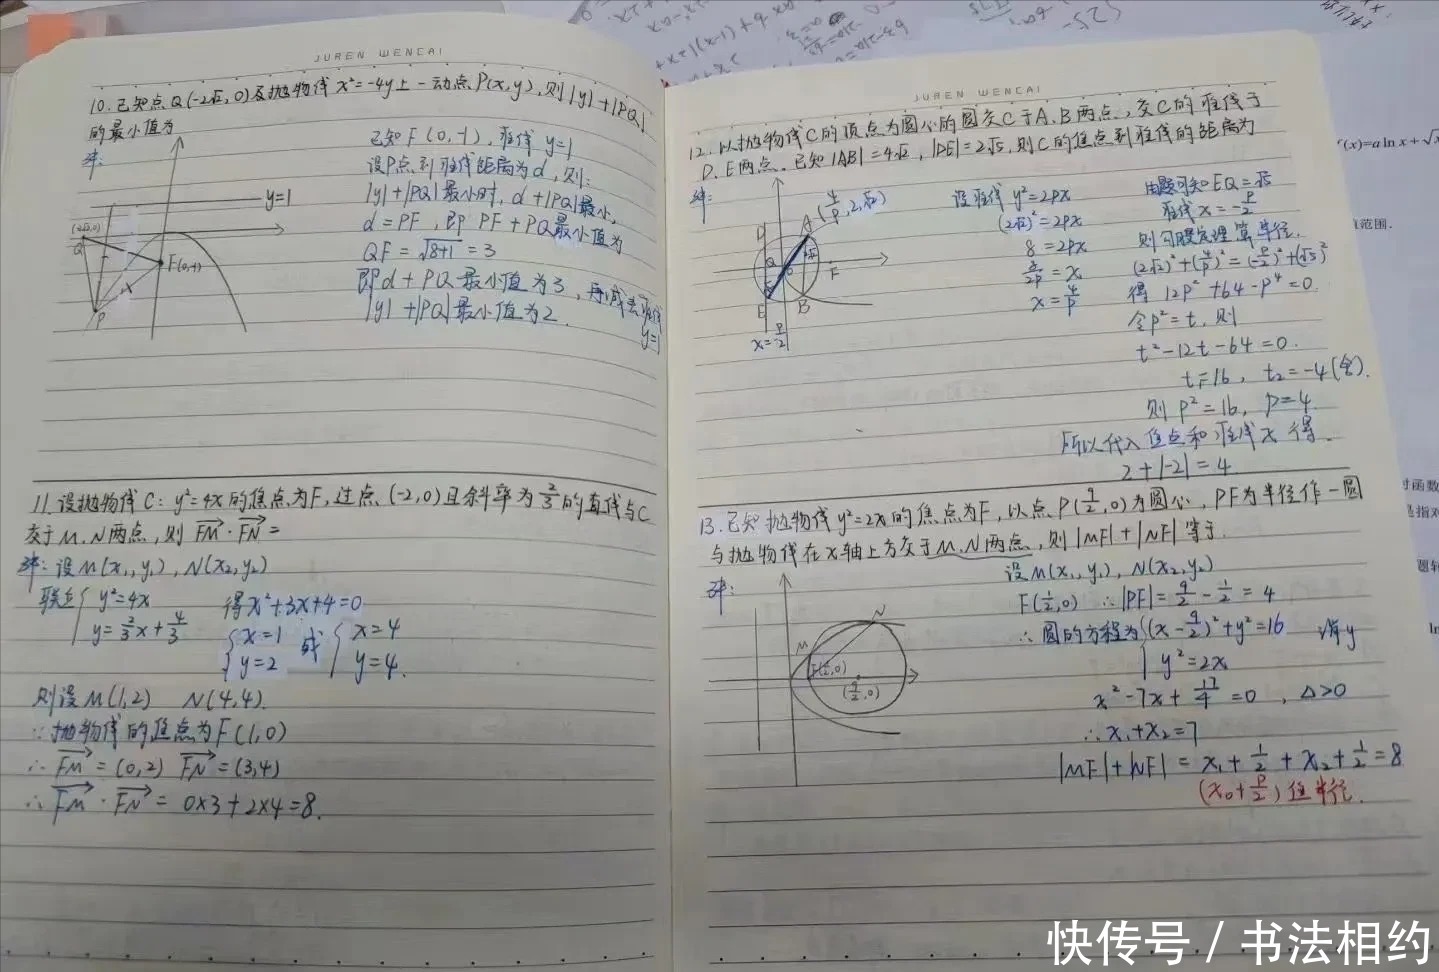 JUREN WENCAI
10. 已知点Q(-2√2, 0)及抛物线x²=-4y上一动点P(x,y),则|y|+|PQ|
的最小值为
解:
已知F(0,-1), 准线 y=1
设P点到准线距离为d, 则:
|y|+|PQ|最小时, d+|PQ|最小,
d=PF, 即 PF+PQ最小值为
QF=√8+1=3
即d+PQ最小值为3, 再减去准线
y=1
|y|+|PQ|最小值为2.
y=1
Q
F(0,-1)
P
11. 设抛物线C: y²=4x的焦点为F, 过点(-2,0)且斜率为2/3的直线与C
交于M.N两点, 则 FM·FN=
解: 设M(x₁,y₁), N(x₂,y₂)
联立{ y²=4x
y=2/3x+4/3
得x²+3x+4=0
{x=1 或 {x=4
y=2 y=4.
则设M(1,2) N(4,4).
∵抛物线的焦点为F(1,0)
∴FM=(0,2) FN=(3,4)
∴FM·FN=0×3+2×4=8.
JUREN WENCAI
12. 以抛物线C的顶点为圆心的圆交C于A.B两点, 交C的准线于
D.E两点. 已知|AB|=4√2, |DE|=2√5, 则C的焦点到准线的距离为
解:
A(4/p, 2√2)
D
Q
F
E
B
x=-p/2
设准线 y²=2px
(2√2)²=2px
8=2px
8/2p=x
x=4/p
由题可知EQ=√5
准线x=-p/2
则勾股定理算半径.
(2√2)²+(4/p)²=(-p/2)²+(√5)²
得 12p²+64-p⁴=0
令p²=t, 则
t²-12t-64=0.
t₁=16, t₂=-4(舍).
则 p²=16, p=4.
所以代入焦点和准线x得.
2+|-2|=4
13. 已知抛物线y²=2x的焦点为F, 以点P(9/2,0)为圆心, PF为半径作一圆
与抛物线在x轴上方交于M.N两点, 则|MF|+|NF|等于.
解:
M
N
F(1/2,0)
(9/2,0)
设M(x₁,y₁), N(x₂,y₂)
F(1/2,0) ∴|PF|=9/2-1/2=4
∴圆的方程为{(x-9/2)²+y²=16 消y
y²=2x
x²-7x+17/4=0, Δ>0
∴x₁+x₂=7
|MF|+|NF|=x₁+1/2+x₂+1/2=8
(x₀+p/2)焦半径.
(x)=a ln x+√x
值范围.
快传号 / 书法相约